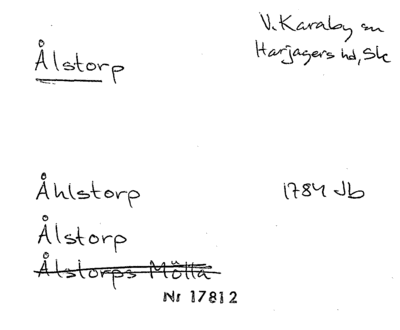 V. Karaby sn
Harjagers hd, Sk
Ålstorp
Åhlstorp 1784 Jb
Ålstorp
Ålstorps Mölla
Nr 17812